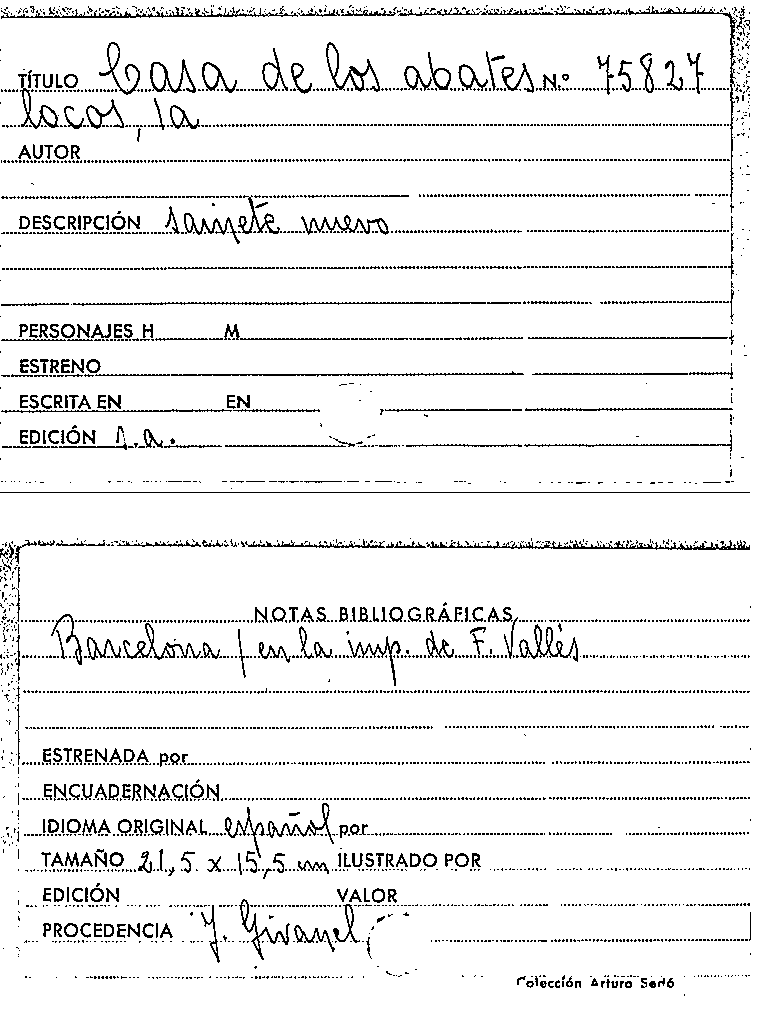 TÍTULO Casa de los abates N.º 75827
locos, la
AUTOR
DESCRIPCIÓN sainete nuevo
PERSONAJES H M
ESTRENO
ESCRITA EN EN
EDICIÓN s.a.
NOTAS BIBLIOGRÁFICAS
Barcelona / en la imp. de F. Vallés
ESTRENADA por
ENCUADERNACIÓN
IDIOMA ORIGINAL español por
TAMAÑO 21,5 x 15,5 cm ILUSTRADO POR
EDICIÓN VALOR
PROCEDENCIA J. Givanel
Colección Arturo Sedó